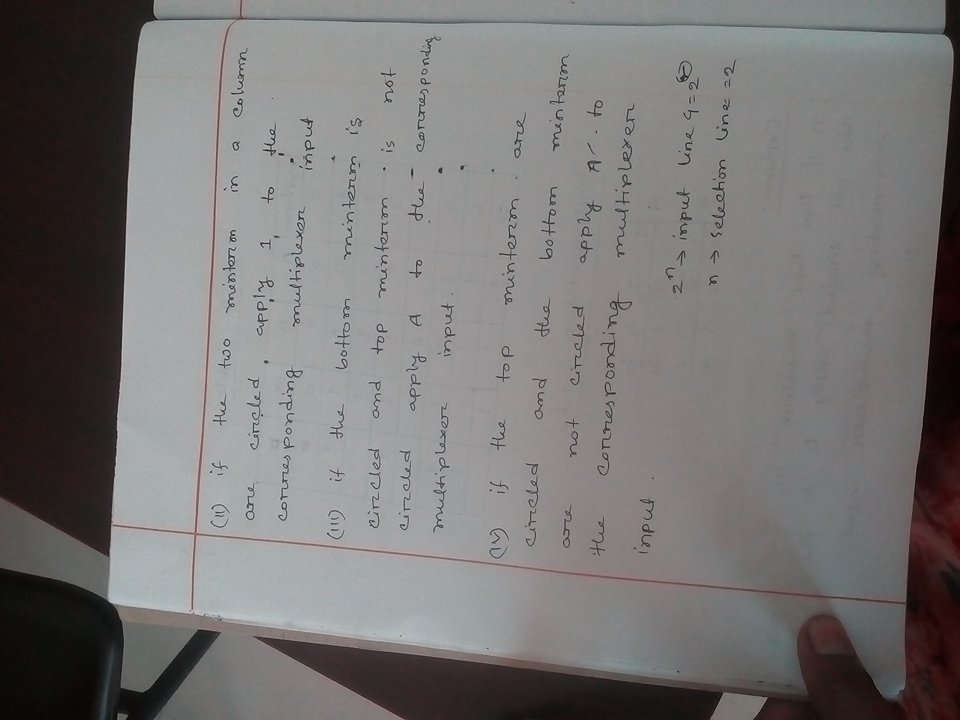 (II) if the two minterm in a column
are circled, apply 1, to the
corresponding multiplexer input
(III) if the bottom minterm is
circled and top minterm is not
circled apply A to the corresponding
multiplexer input.
(IV) if the top minterm are
circled and the bottom minterm
are not circled apply A' to
the corresponding multiplexer
input.
2^n → input line 4=2^2
n → selection line =2